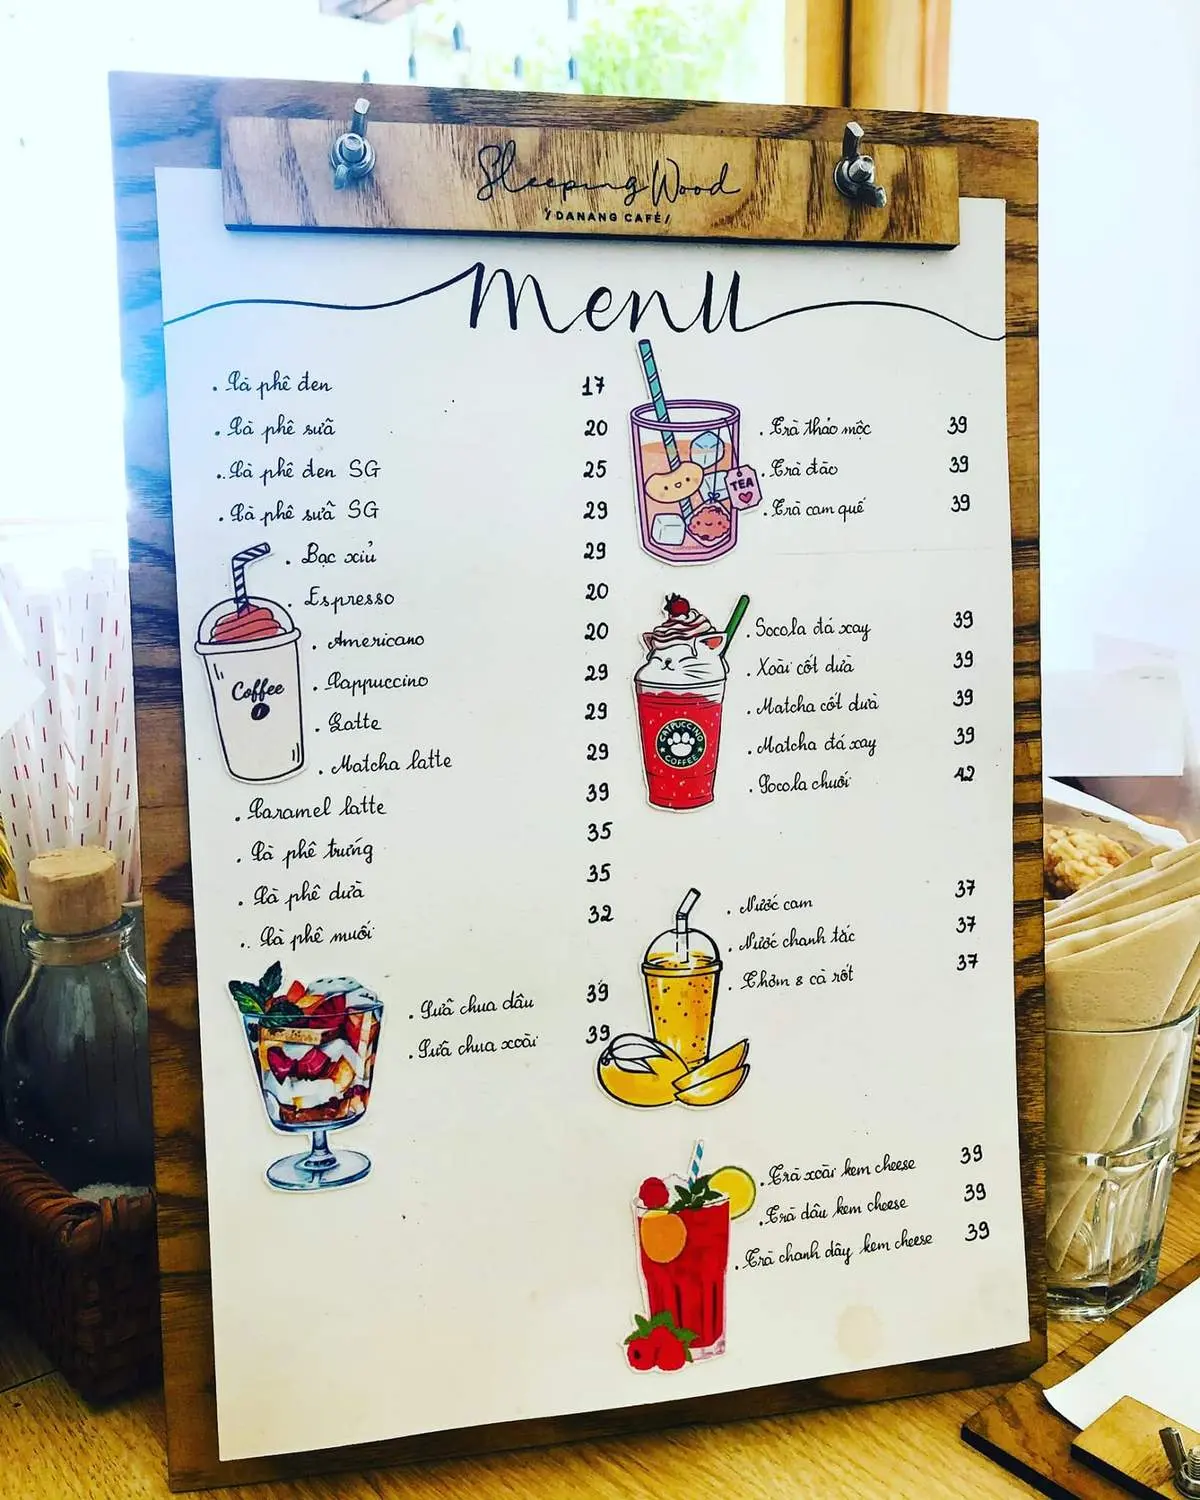 Sleeping Wood
/DANANG CAFÉ/
Menu
. Cà phê đen 17
. Cà phê sữa 20
. Cà phê đen SG 25
. Cà phê sữa SG 29
. Bạc xiủ 29
. Espresso 20
. Americano 20
. Cappuccino 29
. Latte 29
. Matcha latte 29
. Caramel latte 39
. Cà phê trứng 35
. Cà phê dừa 35
. Cà phê muối 32
Coffee
. Sữa chua dâu 39
. Sữa chua xoài 39
. Trà thảo mộc 39
. Trà đào 39
. Trà cam quế 39
TEA
. Socola đá xay 39
. Xoài cốt dừa 39
. Matcha cốt dừa 39
. Matcha đá xay 39
. Socola chuối 42
CATPUCCINO
COFFEE
. Nước cam 37
. Nước chanh tắc 37
. Thơm & cà rốt 37
. Trà xoài kem cheese 39
. Trà dâu kem cheese 39
. Trà chanh dây kem cheese 39